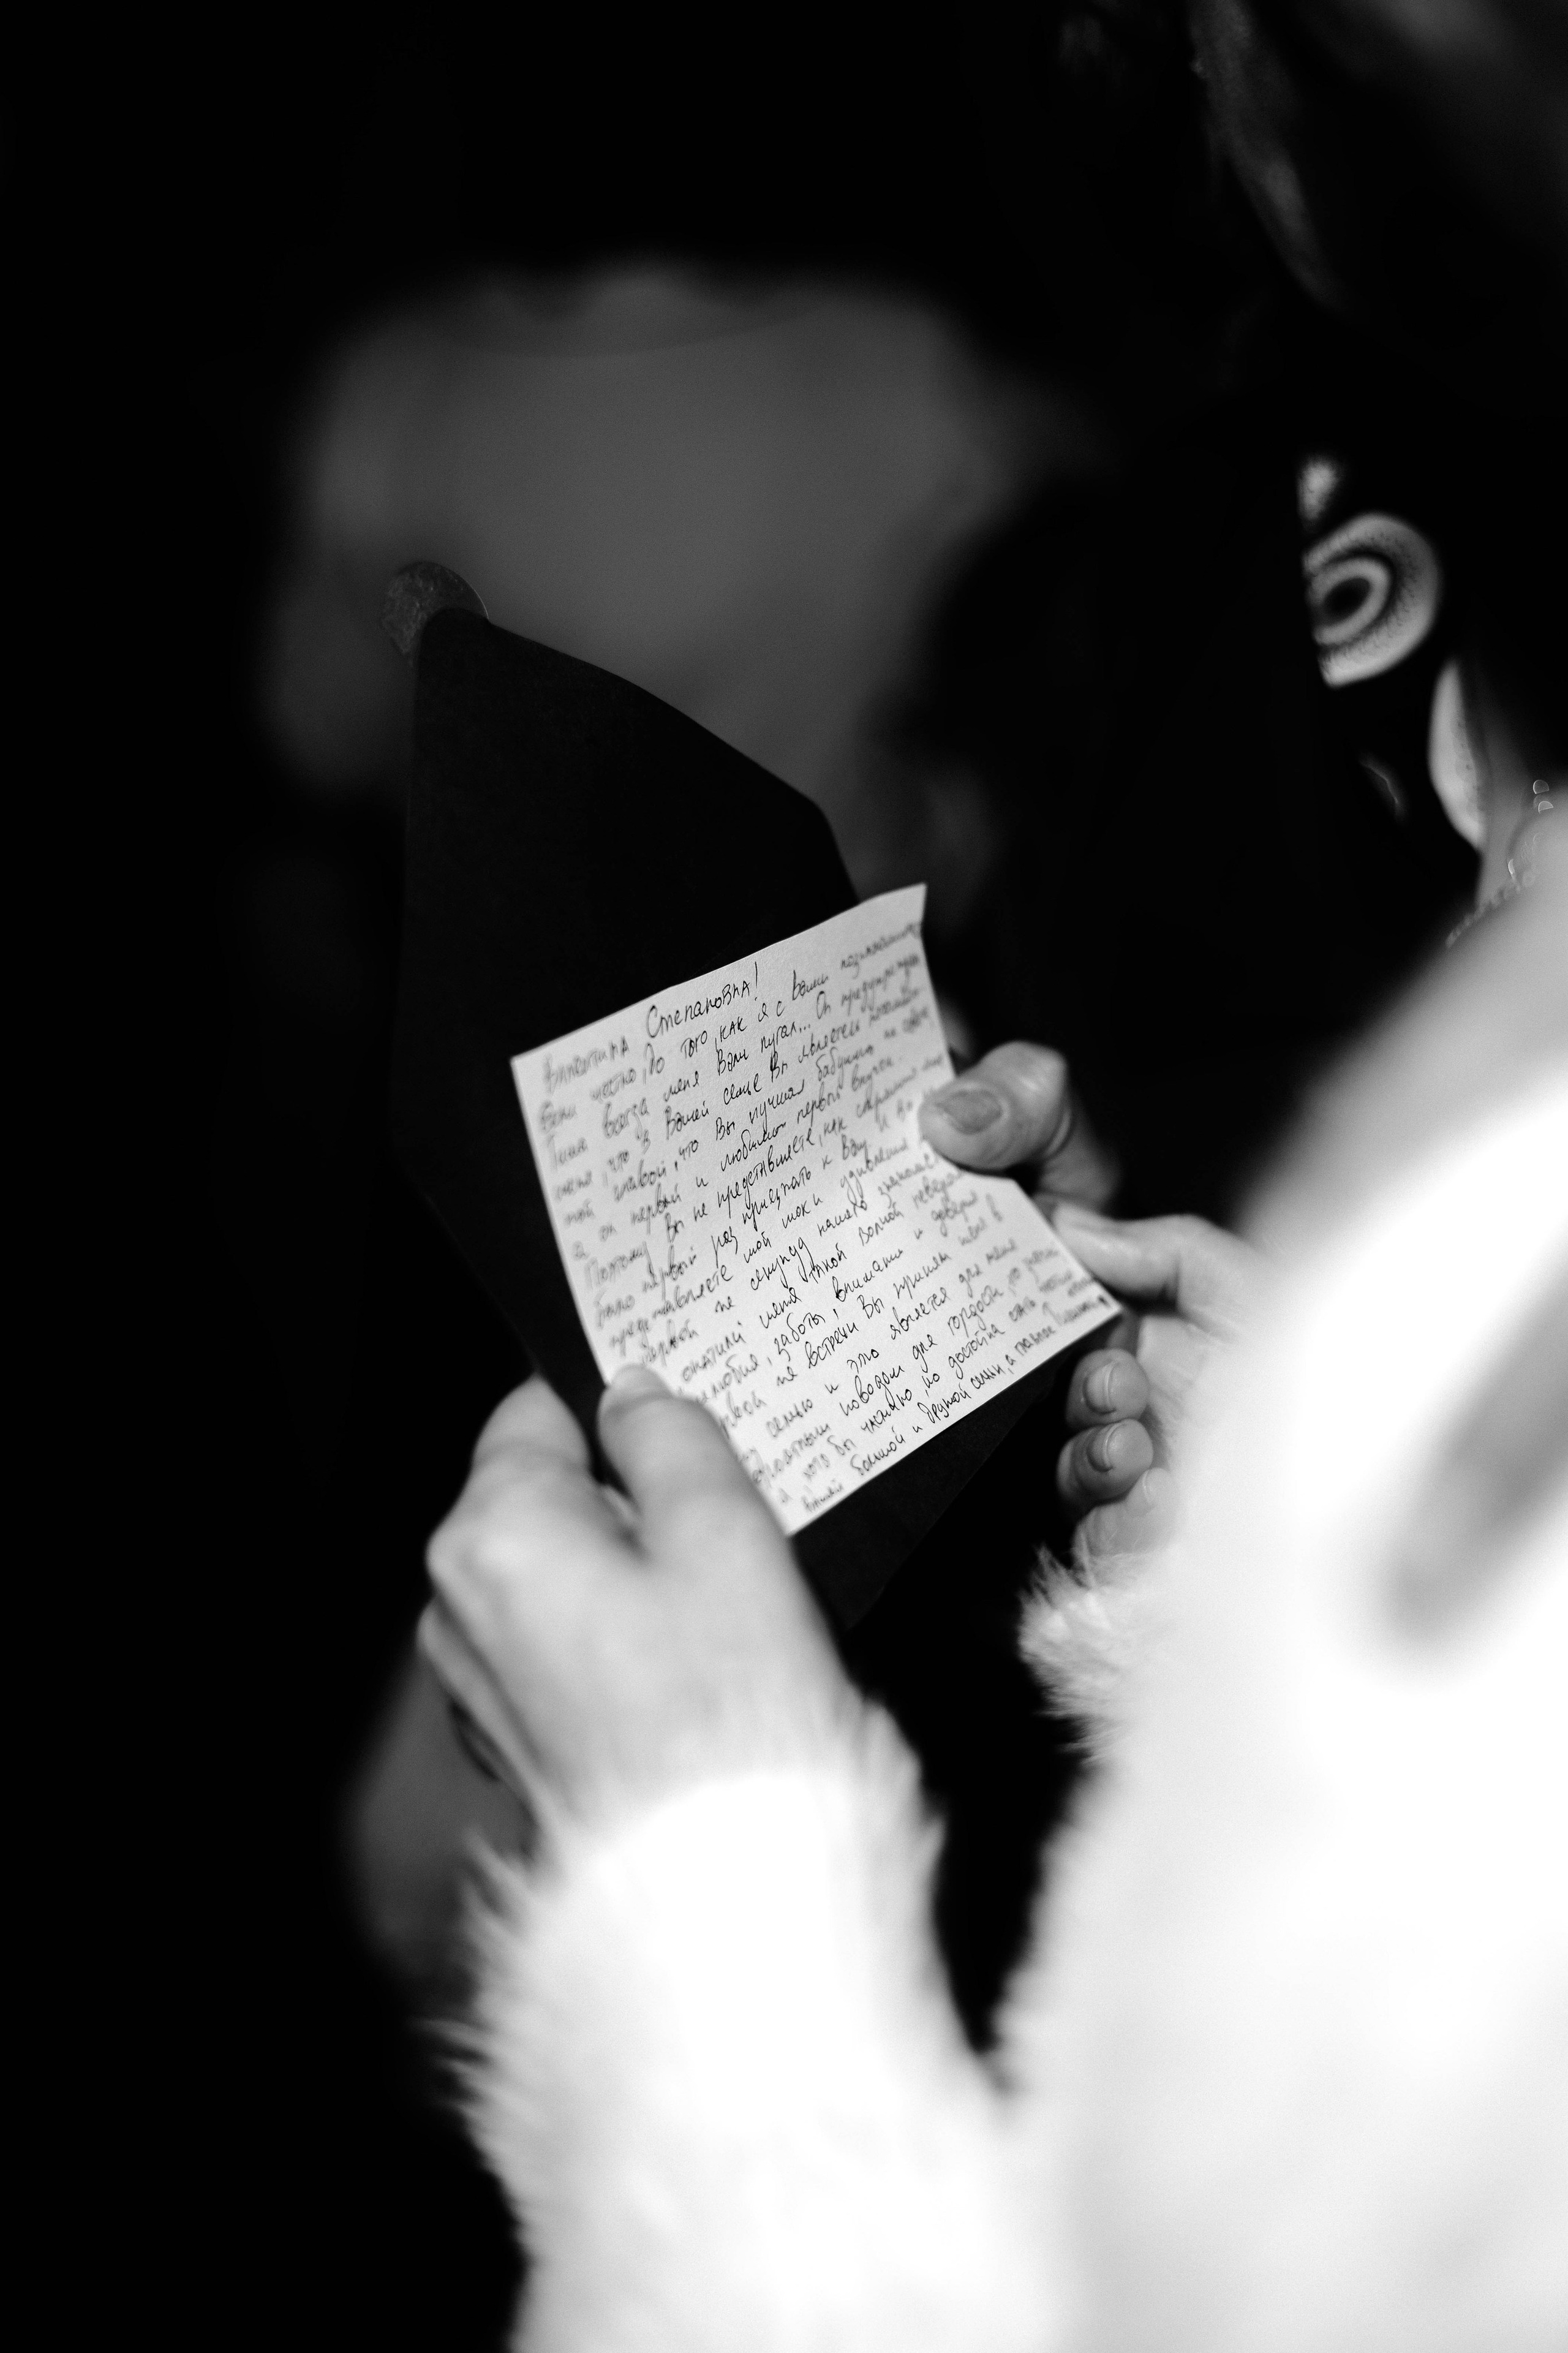 Валентина Степановна!
честно, до того, как я с Вами познакомилась
Гена всегда меня Вами пугал... Он предупреждал
меня, что в Вашей семье Вы являетесь
той главой, что Вы лучшая бабушка на свете,
а он первый и любимый первый внучек.
Поэтому Вы не представляете, как страшно мне
было первый раз приезжать к Вам. И Вы не
представляете мой шок и удивление
первой же секунду нашего знакомства
окатили меня такой волной
любви, заботы, внимания и доверия
первой же встречи Вы приняли меня в
семью и это является для меня
поводом для гордости,
хочу бы честно, но достойна стать частью
Вашей большой и дружной семьи, а главное